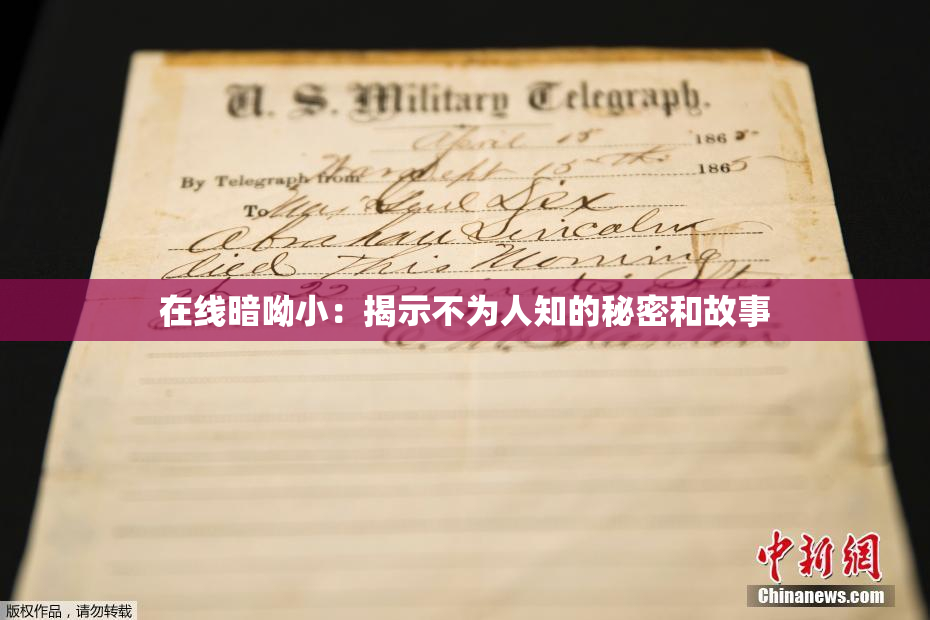 U. S. Military Telegraph.
April 15 1865
By Telegraph from War Dept 15th 1865
To Maj Genl Dix
Abraham Lincoln
died This Morning
at 22 minutes after
在线暗呦小：揭示不为人知的秘密和故事
中新网
Chinanews.com
版权作品，请勿转载